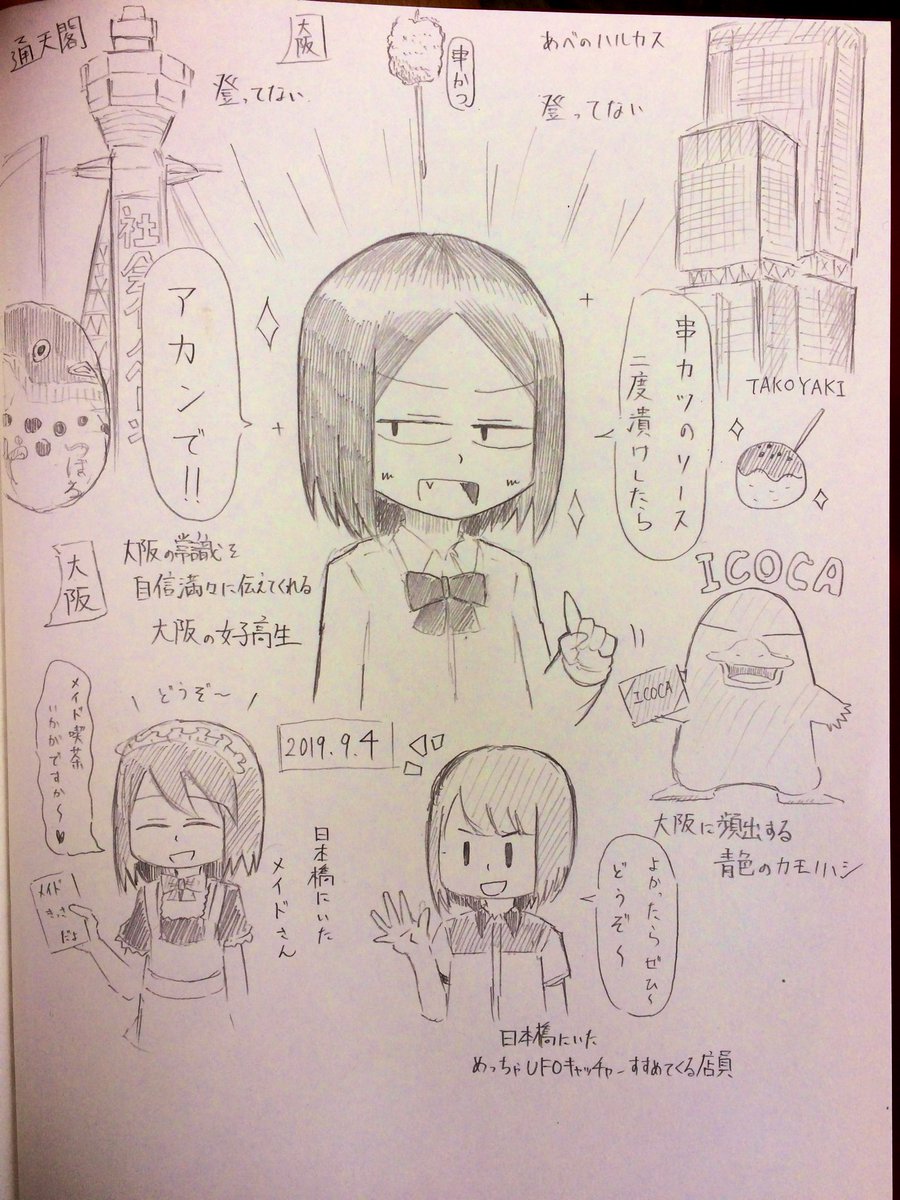 通天閣
大阪
登ってない
串かつ
あべのハルカス
登ってない
社会イノベーション
アカンで!!
串カツのソース
二度漬けしたら
TAKOYAKI
つぼら
大阪
大阪の常識を
自信満々に伝えてくれる
大阪の女子高生
ICOCA
ICOCA
大阪に頻出する
青色のカモノハシ
どうぞ〜
メイド喫茶
いかがですか〜♥
メイド
きっさ
だよ
2019.9.4
日本橋にいた
メイドさん
よかったらぜひ〜
どうぞ〜
日本橋にいた
めっちゃUFOキャッチャーすすめてくる店員